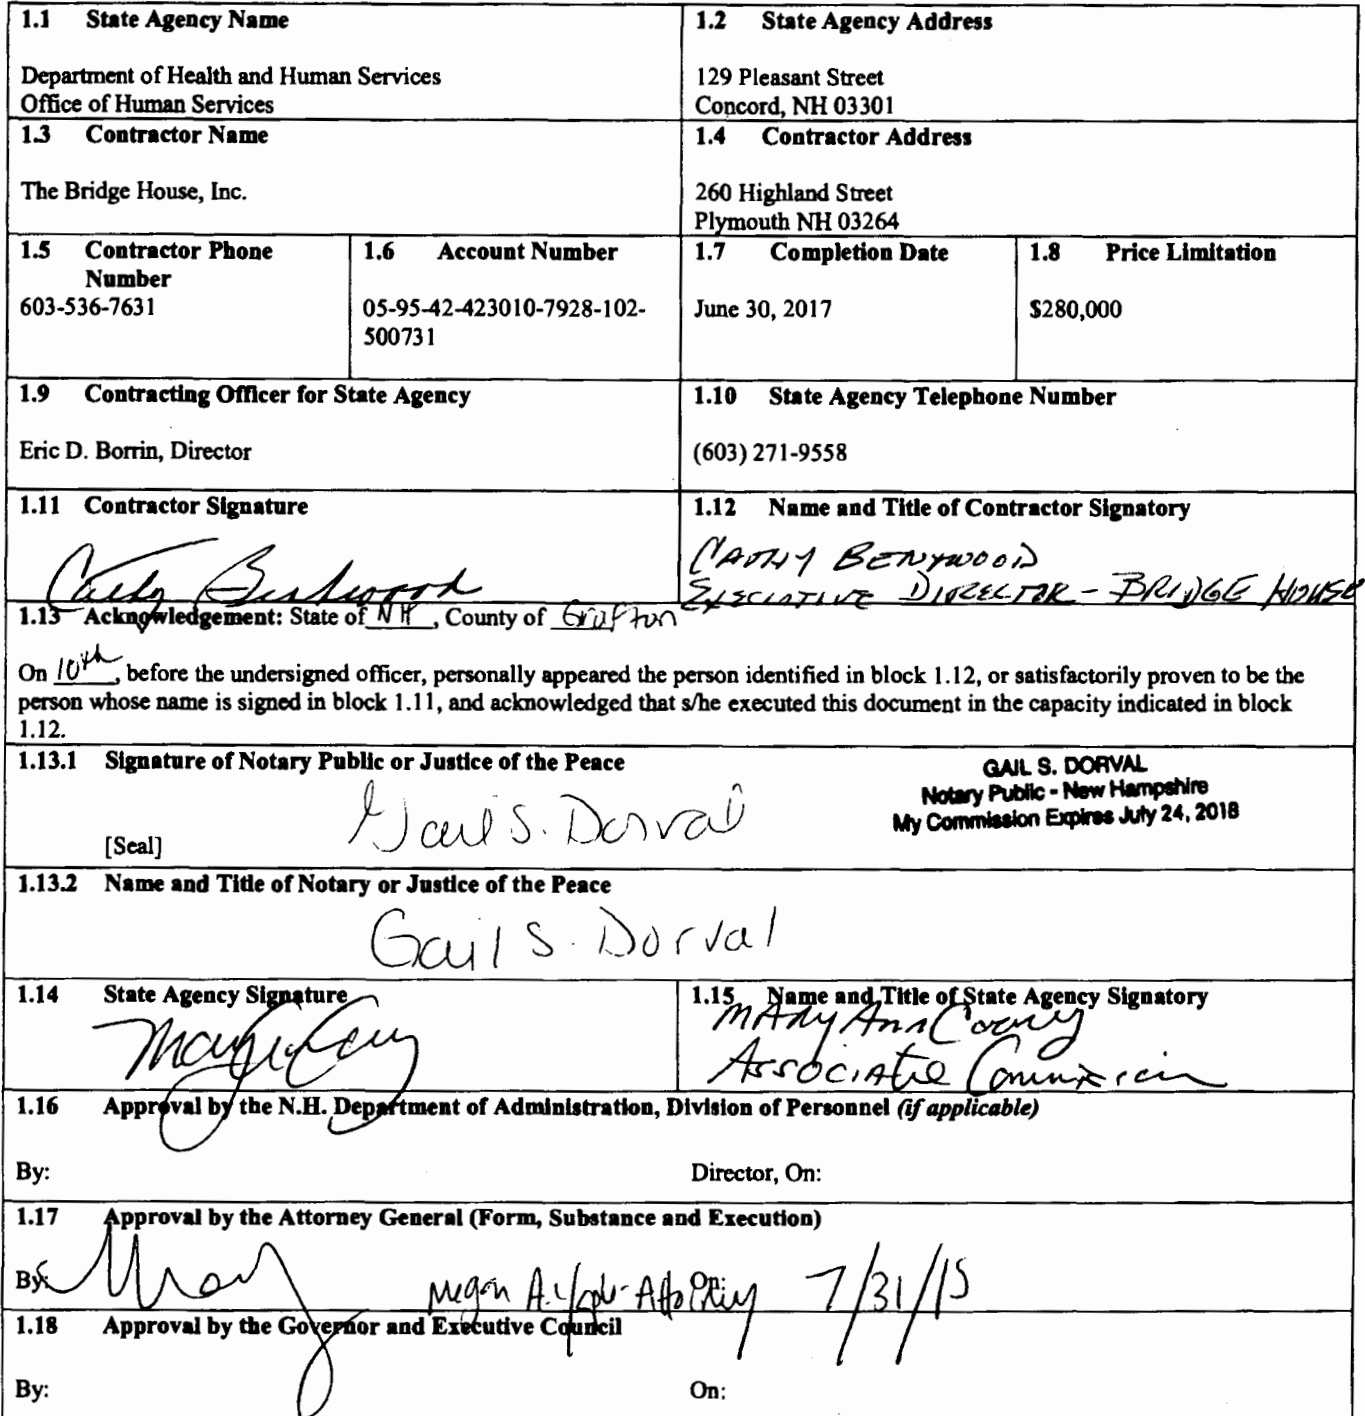 1.1 State Agency Name
Department of Health and Human Services
Office of Human Services
1.2 State Agency Address
129 Pleasant Street
Concord, NH 03301
1.3 Contractor Name
The Bridge House, Inc.
1.4 Contractor Address
260 Highland Street
Plymouth NH 03264
1.5 Contractor Phone
Number
603-536-7631
1.6 Account Number
05-95-42-423010-7928-102-
500731
1.7 Completion Date
June 30, 2017
1.8 Price Limitation
$280,000
1.9 Contracting Officer for State Agency
Eric D. Borrin, Director
1.10 State Agency Telephone Number
(603) 271-9558
1.11 Contractor Signature
1.12 Name and Title of Contractor Signatory
CATHY BENTWOOD
EXECUTIVE DIRECTOR - BRIDGE HOUSE
1.13 Acknowledgement: State of NH, County of Grafton
On 10th, before the undersigned officer, personally appeared the person identified in block 1.12, or satisfactorily proven to be the
person whose name is signed in block 1.11, and acknowledged that s/he executed this document in the capacity indicated in block
1.12.
1.13.1 Signature of Notary Public or Justice of the Peace
Gail S. Dorval
[Seal]
GAIL S. DORVAL
Notary Public - New Hampshire
My Commission Expires July 24, 2018
1.13.2 Name and Title of Notary or Justice of the Peace
Gail S. Dorval
1.14 State Agency Signature
1.15 Name and Title of State Agency Signatory
MAry Ann Cooney
Associate Commissioner
1.16 Approval by the N.H. Department of Administration, Division of Personnel (if applicable)
By:
Director, On:
1.17 Approval by the Attorney General (Form, Substance and Execution)
By: Megan A. Attorney On: 7/31/15
1.18 Approval by the Governor and Executive Council
By:
On: